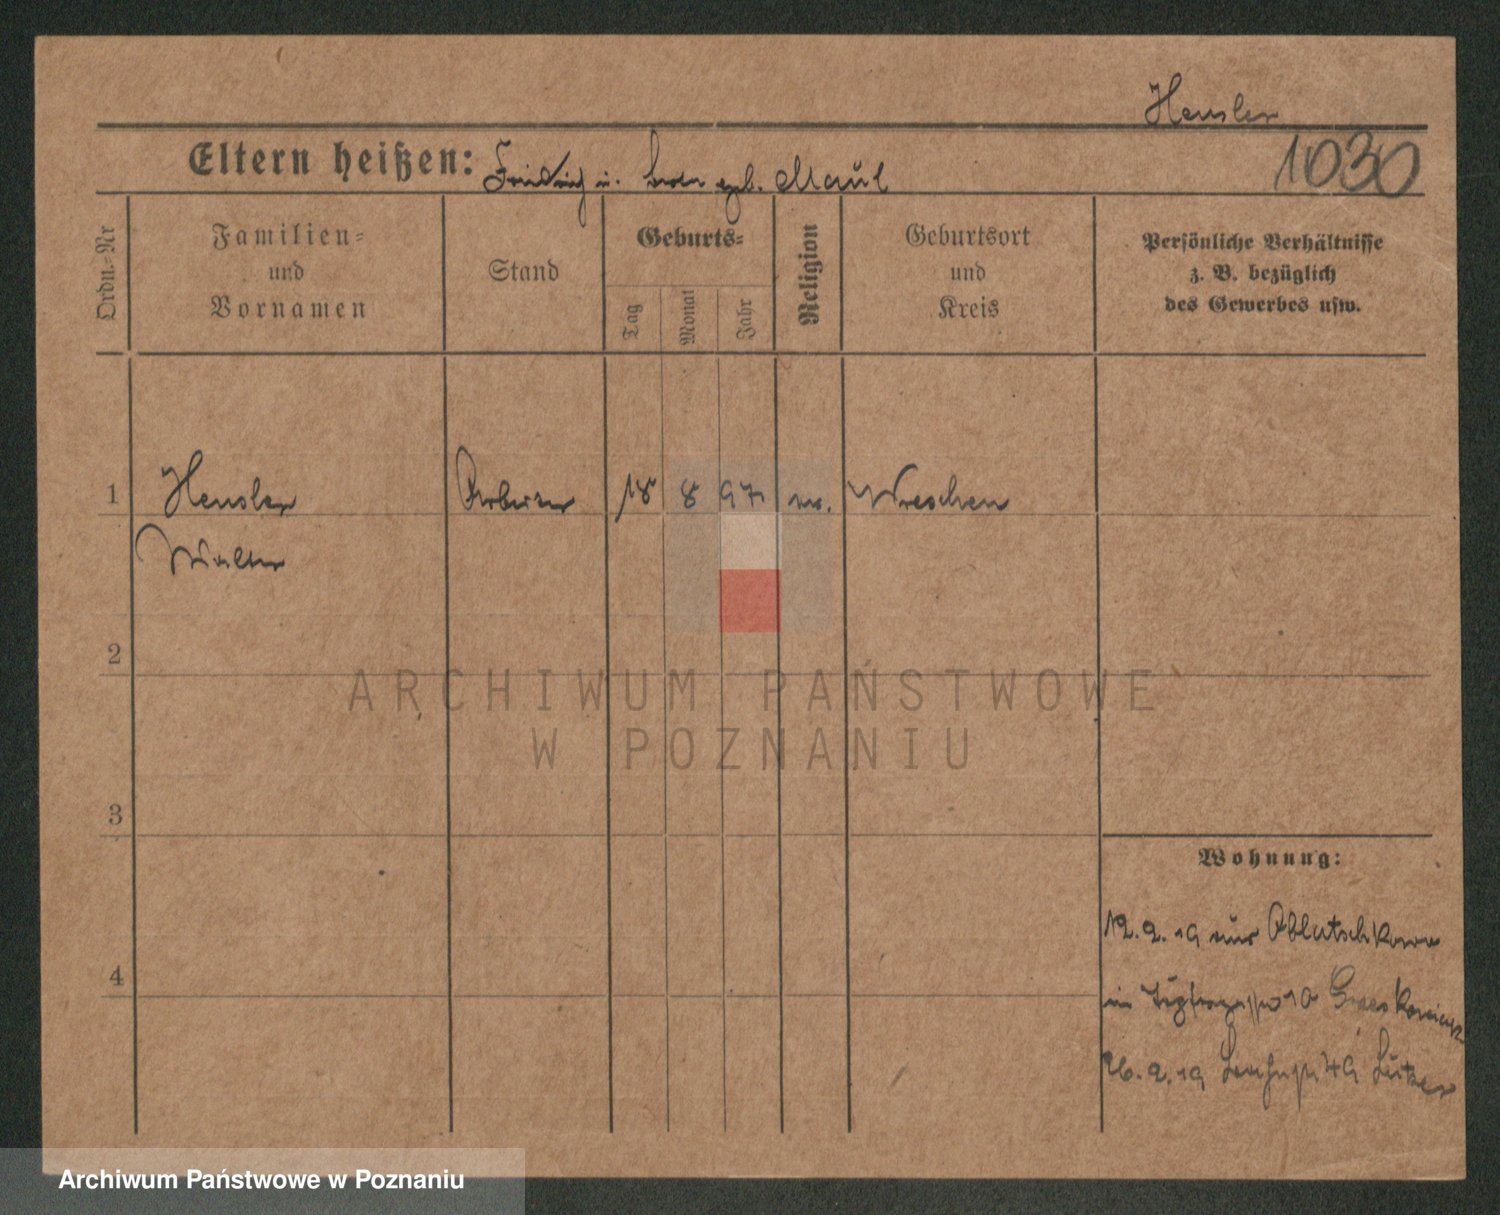 Hensler
1030
Eltern heißen: Friedrich u. geb. Maul
Ordn.-Nr
Familien-
und
Vornamen
Stand
Geburts-
Tag
Monat
Jahr
Religion
Geburtsort
und
Kreis
Persönliche Verhältnisse
z. B. bezüglich
des Gewerbes usw.
1 Hensler Arbeiter 18 8 97 ev. Wreschen
Walter
2
ARCHIWUM PAŃSTWOWE
W POZNANIU
3
Wohnung:
12.2.19 aus
4
in 10
26.2.19
Archiwum Państwowe w Poznaniu